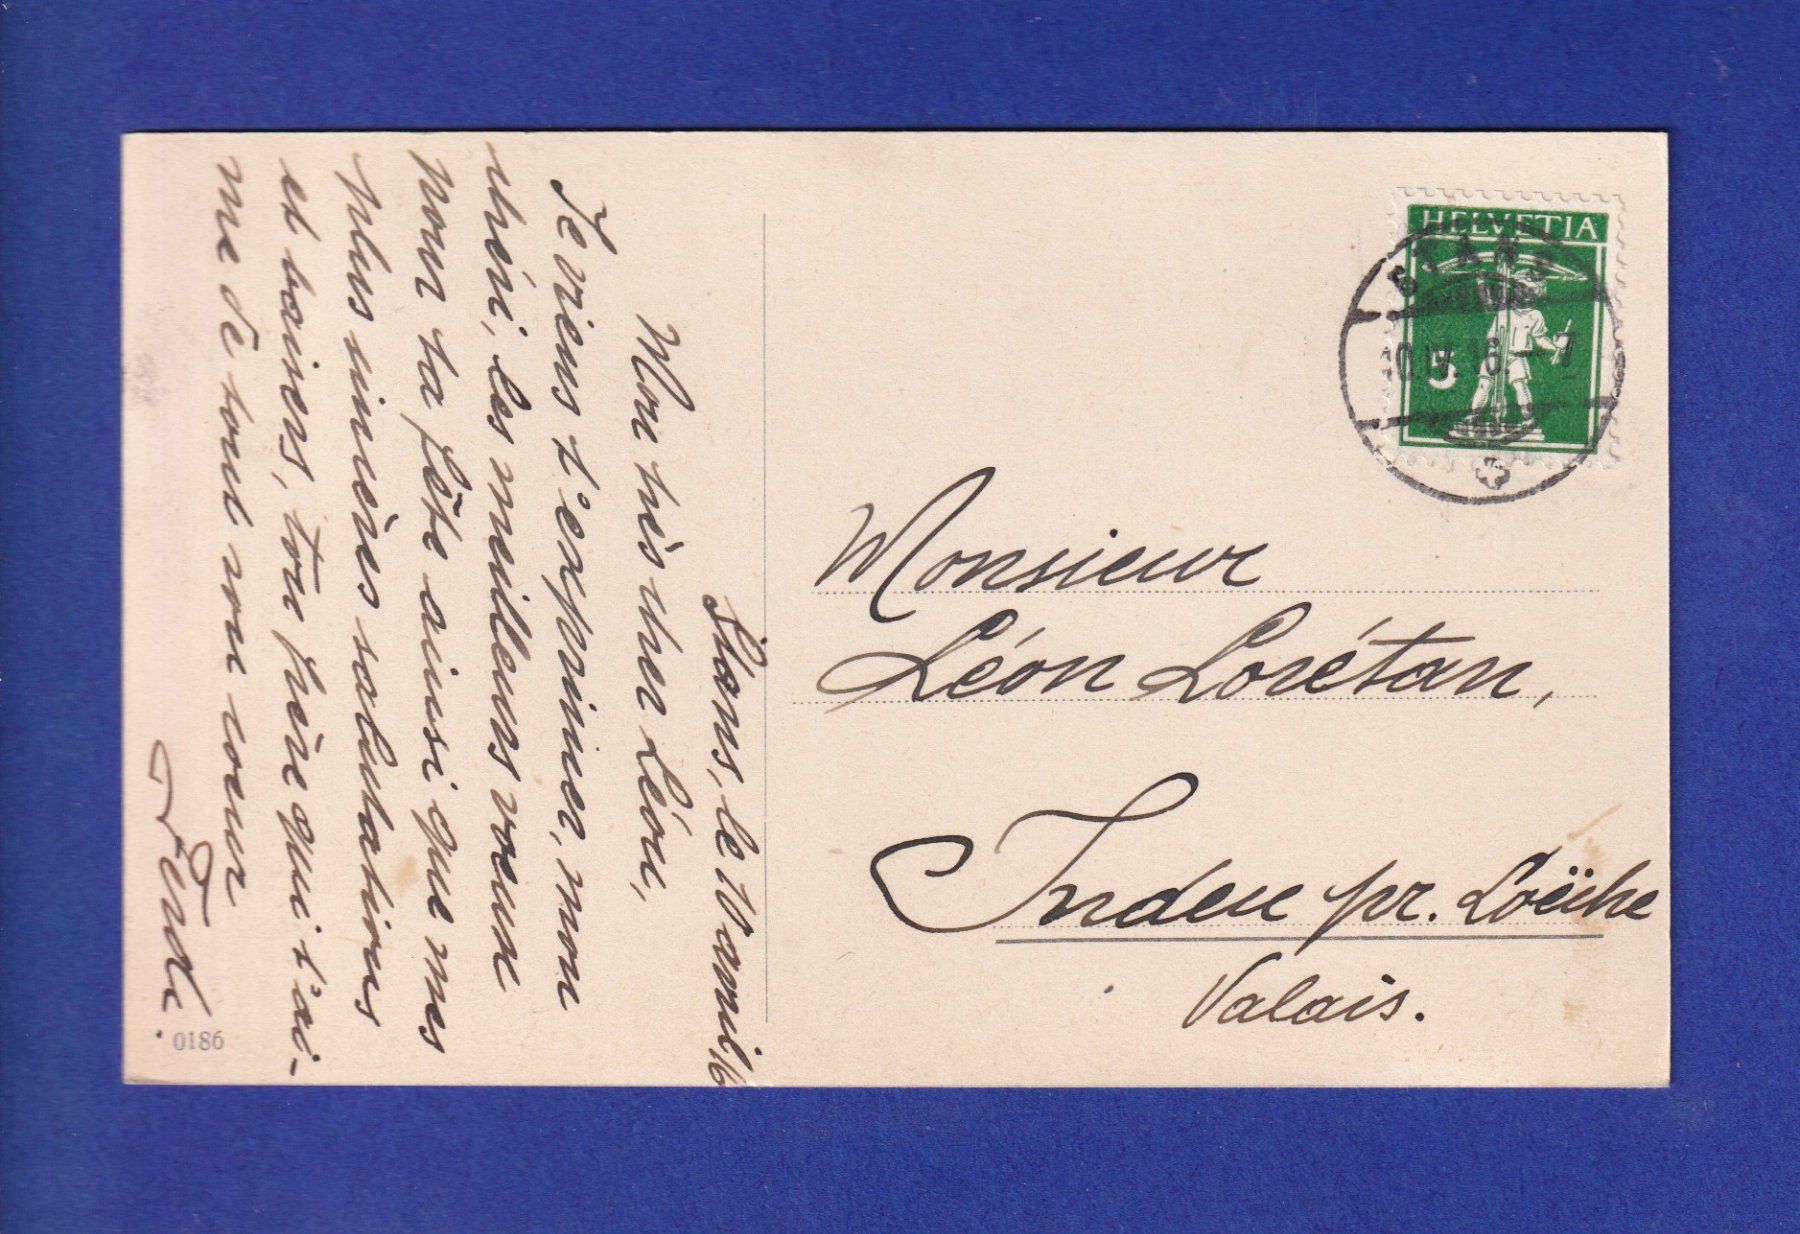 Stans, le 10 avril 16
Mon très cher Léon,
Je viens t'exprimer, mon
chéri, les meilleurs voeux
pour ta fête ainsi que mes
plus sincères salutations
et baisers, ton frère qui t'ai-
me de tout son coeur
0186
HELVETIA
STANS
10.IV.16.-7
5
Monsieur
Léon Lorétan,
Inden pr. Loëche
Valais.